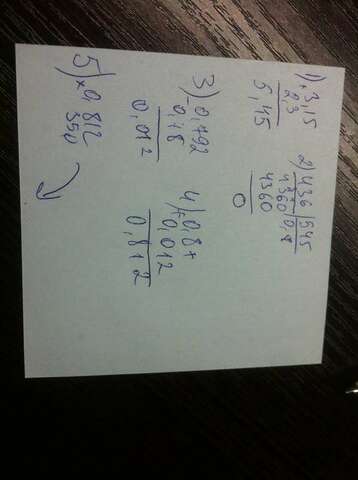 1) + 3,15
2,3
5,45
2) 436 | 545
4360 | 0,8
4360
0
3) - 0,792
0,78
0,012
4) + 0,8+
0,012
0,812
5) x 0,812
350